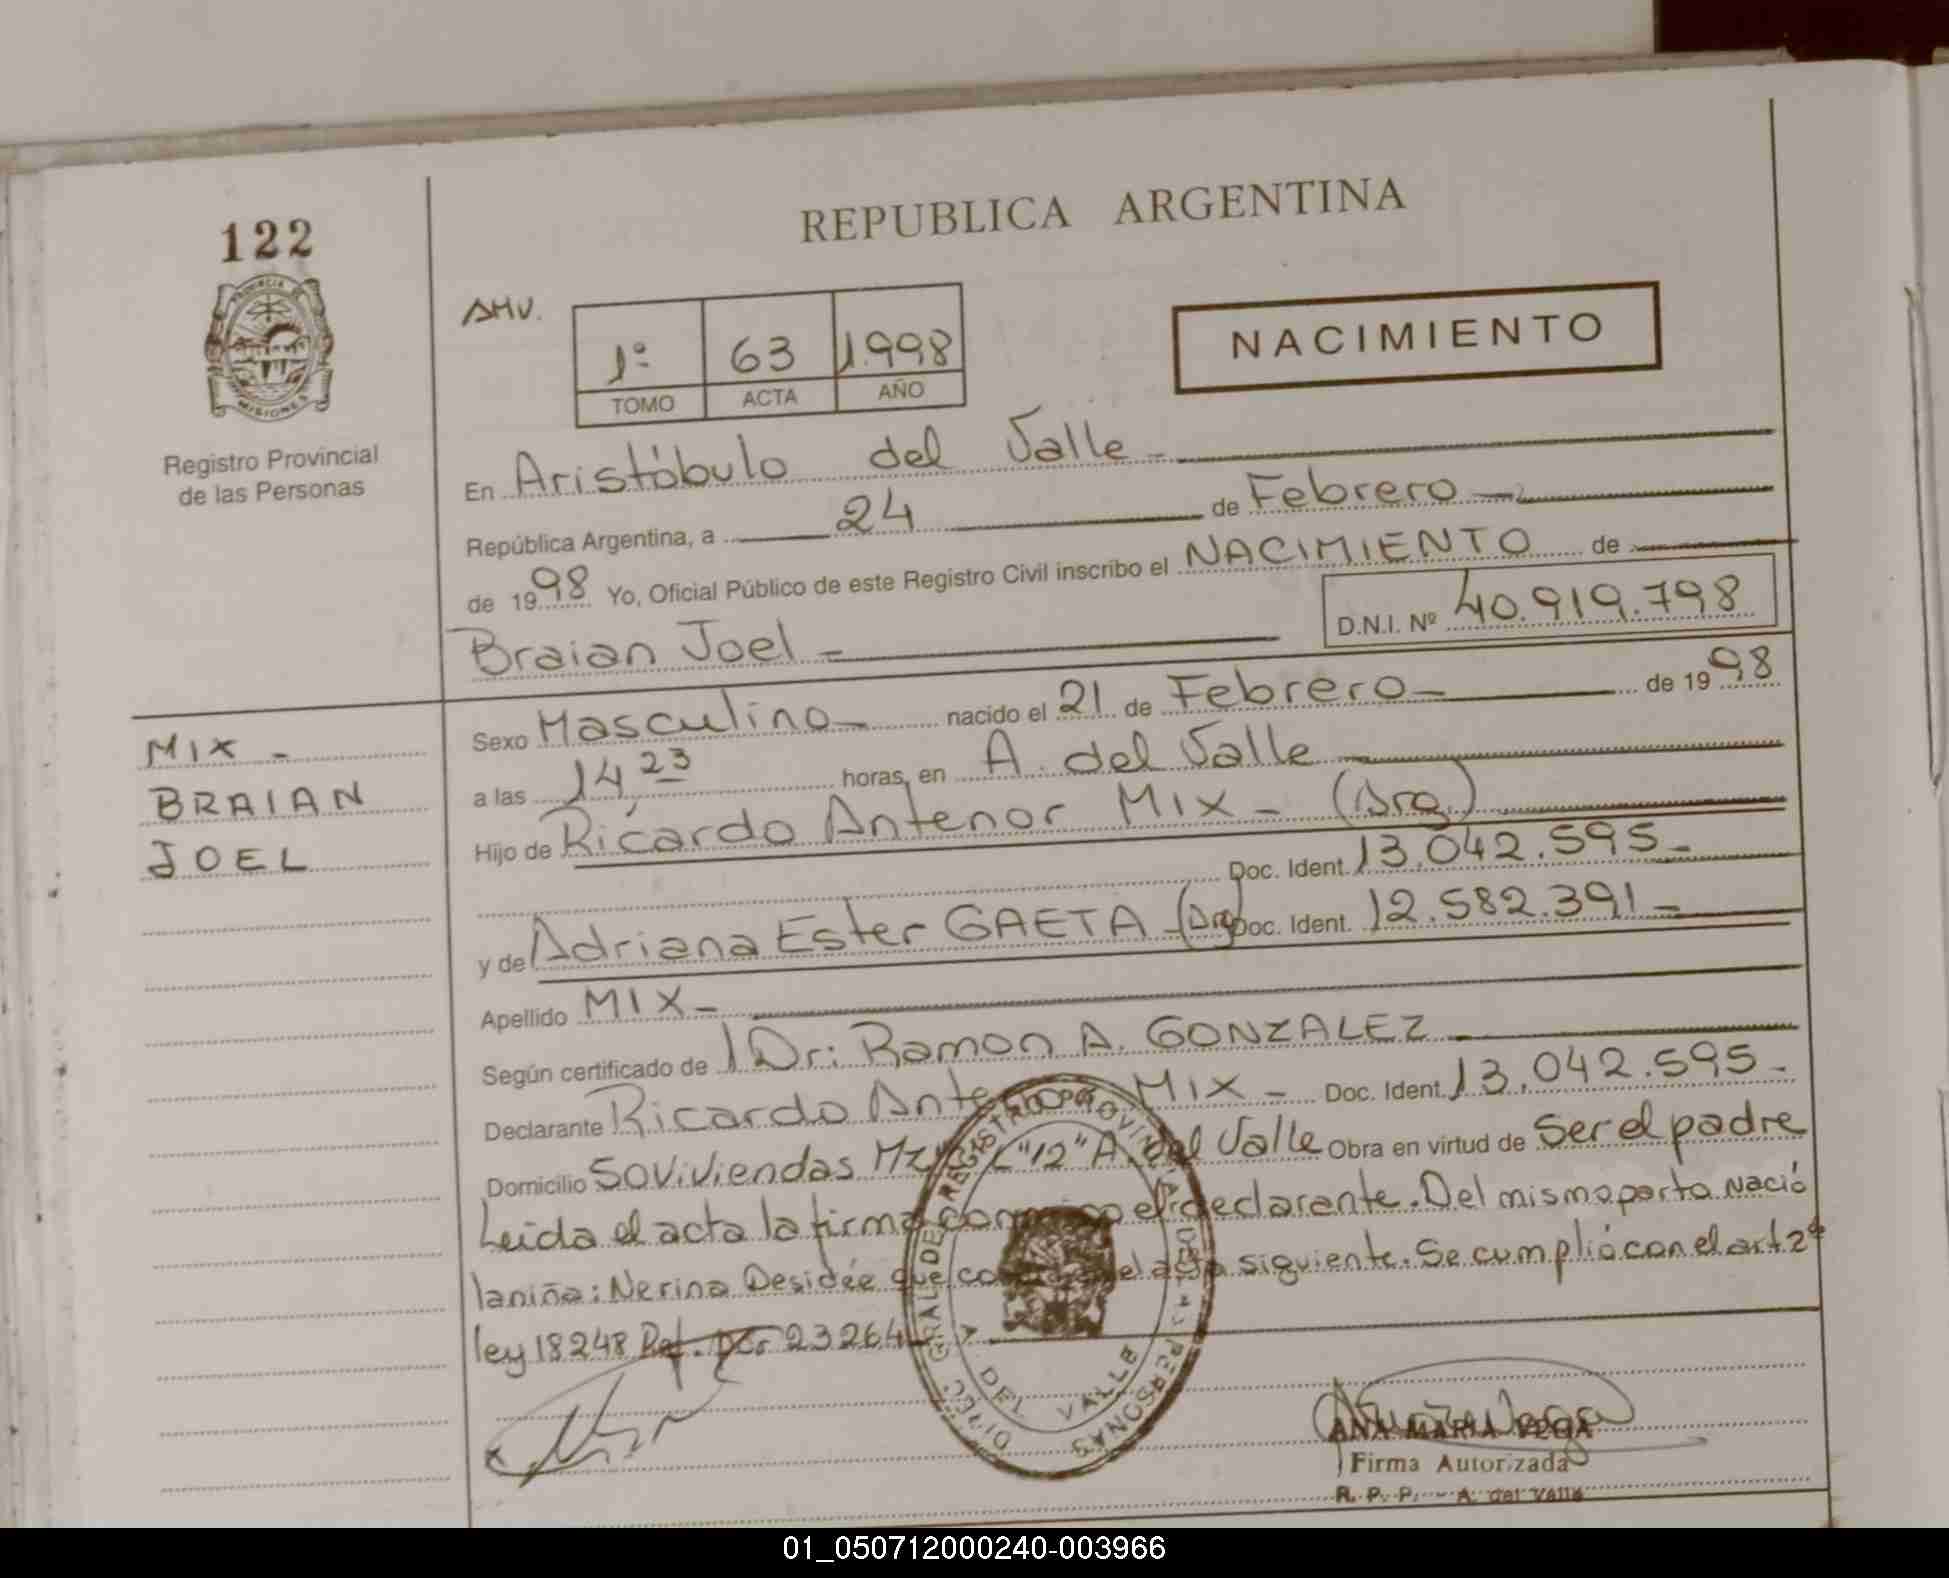 122
REPUBLICA ARGENTINA
PROVINCIA DE MISIONES
Registro Provincial
de las Personas
AMV.
1º 63 1.998
TOMO ACTA AÑO
NACIMIENTO
En Aristóbulo del Valle -
República Argentina, a 24 de Febrero
de 1998 Yo, Oficial Público de este Registro Civil inscribo el NACIMIENTO de
Braian Joel - D.N.I. Nº 40.919.798
MIX -
BRAIAN
JOEL
Sexo Masculino - nacido el 21 de Febrero - de 1998
a las 14,23 horas, en A. del Valle
Hijo de Ricardo Antenor MIX - (Arg.)
Doc. Ident. 13.042.595 -
y de Adriana Ester GAETA - (Arg) Doc. Ident. 12.582.391 -
Apellido MIX -
Según certificado de Dr: Ramon A. GONZALEZ
Declarante Ricardo MIX - Doc. Ident. 13.042.595 -
Domicilio 50 Viviendas "12" A. del Valle Obra en virtud de Ser el padre
Leida el acta la firma el declarante. Del mismo parto Nació
la niña: Nerina Desidée que el acta siguiente. Se cumplió con el art 2º
ley 18248 23264
DIREC. GRAL DE REGISTRO PROVINCIAL DE LAS PERSONAS
DEL VALLE
ANA MARIA VEGA
Firma Autorizada
R. P. P. - A. del Valle
01_050712000240-003966